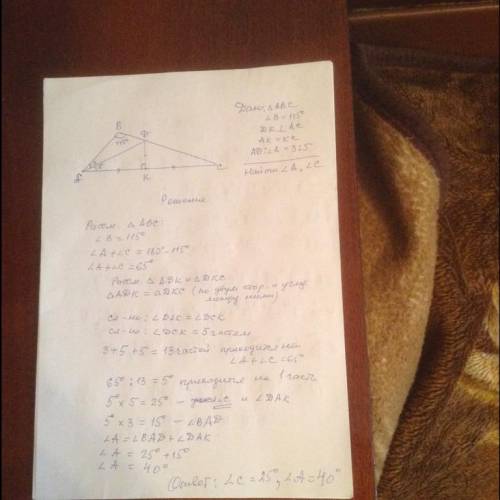 Дано: △ABC
∠B=115°
DK⊥AC
AK=KC
AD:∠A=3:5
Найти ∠A, ∠C
B
115°
K
Решение
Рассм. △ABC:
∠B=115°
∠A+∠C=180°-115°
∠A+∠C=65°
Рассм. △ADK и △DKC
△ADK=△DKC (по двум стор. и углу
между ними)
сл-но: ∠DAK=∠DCK
сл-но: ∠DCK=5 частям
3+5+5=13 частей приходится на
∠A+∠C=65°
65°:13=5° приходится на 1 часть
5°×5=25° - и ∠DAK
5°×3=15° - ∠BAD
∠A=∠BAD+∠DAK
∠A=25°+15°
∠A=40°
(Ответ: ∠C=25°, ∠A=40°